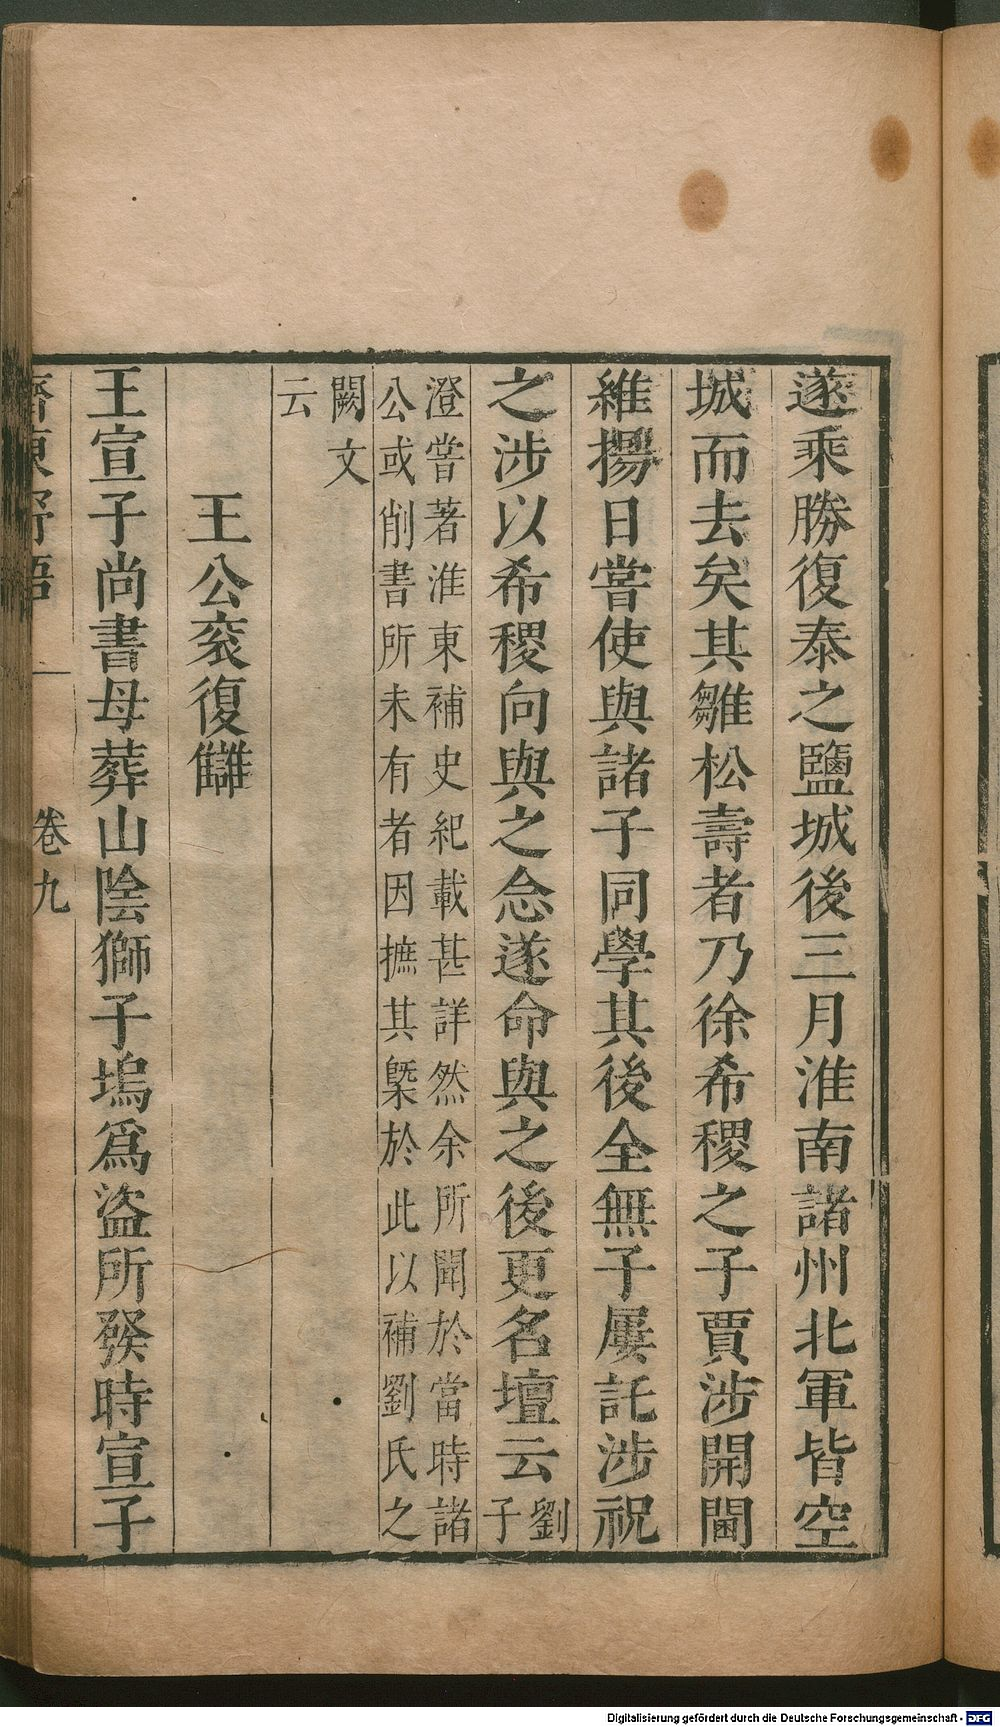 遂乘勝復泰之鹽城後三月淮南諸州北軍皆空
城而去矣其雛松壽者乃徐希稷之子賈涉開閫
維揚日嘗使與諸子同學其後全無子屢託涉祝
之涉以希稷向與之念遂命與之後更名壇云劉子
澄嘗著淮東補史紀載甚詳然余所聞於當時諸
公或削書所未有者因摭其槩於此以補劉氏之
闕文
云
王公衮復讎
王宣子尚書母葬山陰獅子塢爲盜所發時宣子
齊東野語
卷九
Digitalisierung gefördert durch die Deutsche Forschungsgemeinschaft - DFG